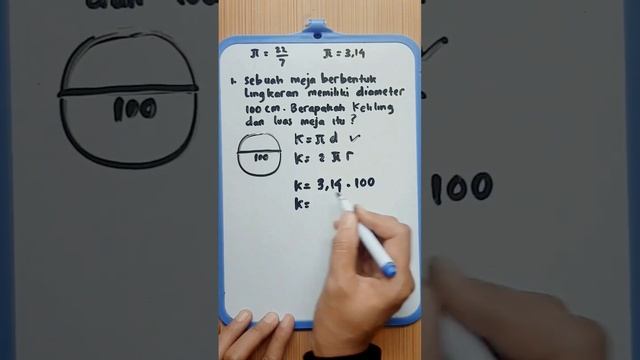 π = 22/7 π = 3,14
1. Sebuah meja berbentuk
Lingkaran memiliki diameter
100 cm. Berapakah Keliling
dan luas meja itu ?
100
K = π d ✓
K = 2 π r
K = 3,14 . 100
K =
100
100